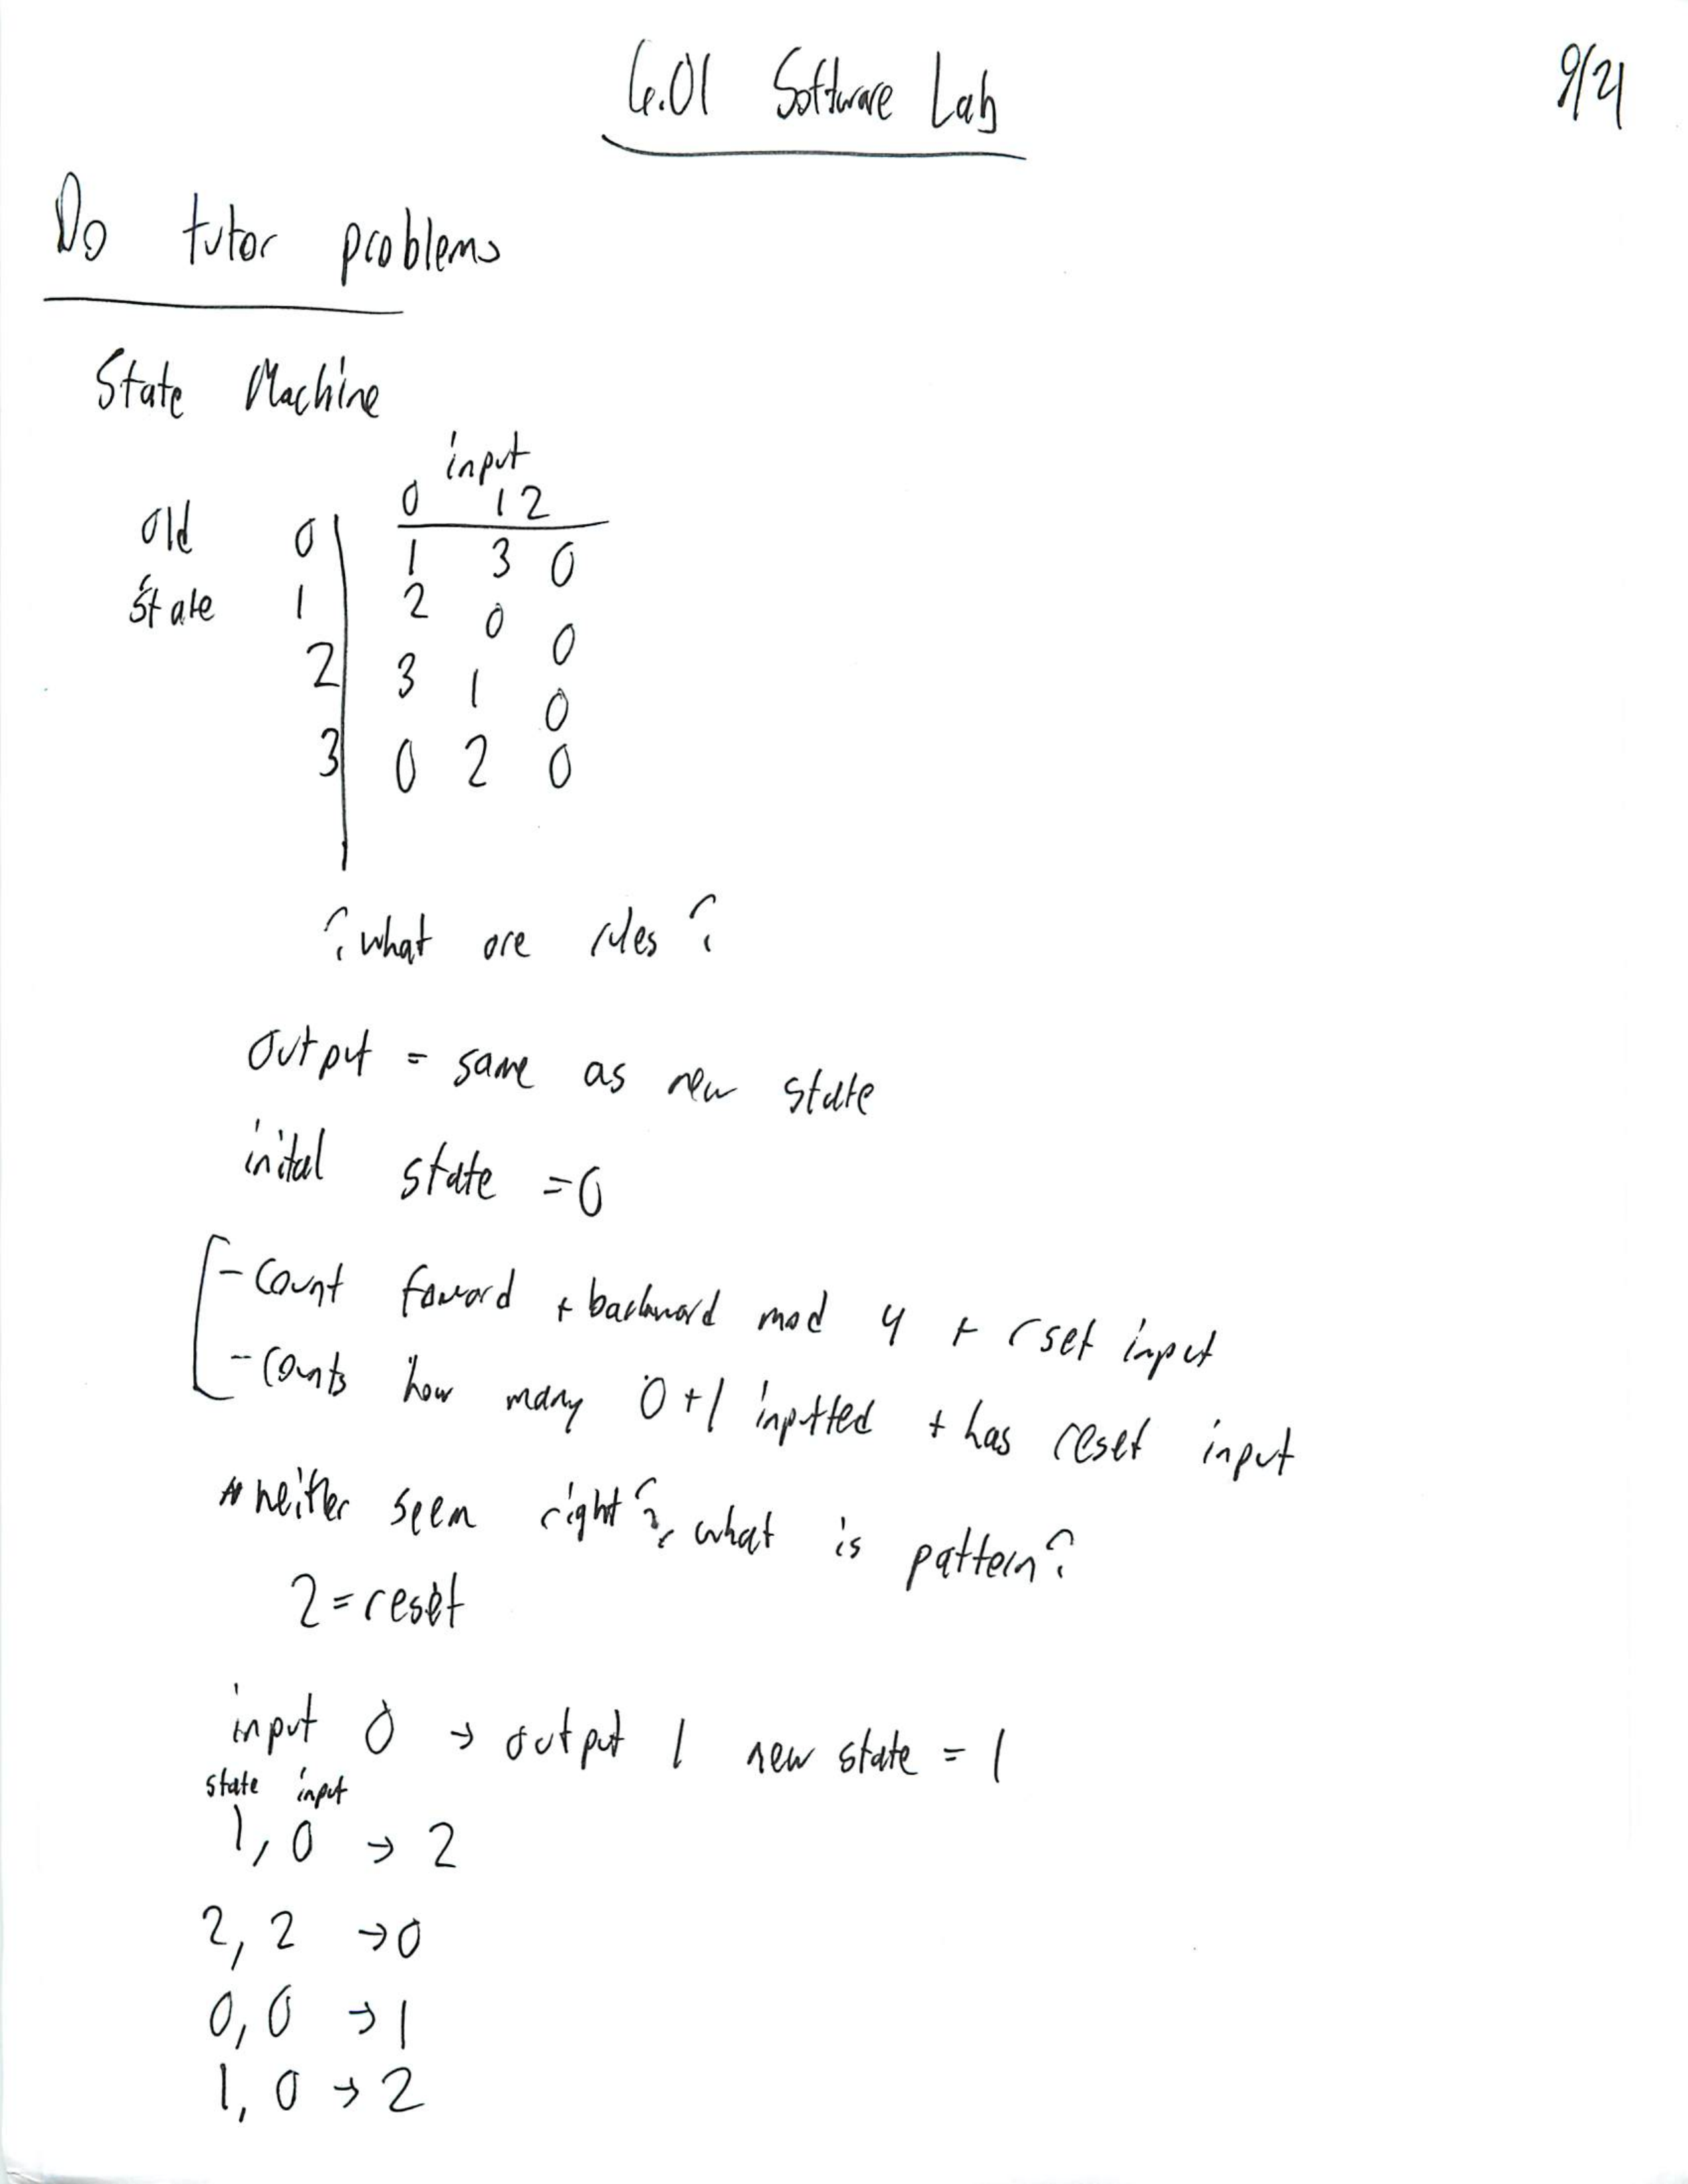 6.01 Software Lab 9/21
Do tutor problems
State Machine
input
0 1 2
old 0 1 3 0
state 1 2 0 0
2 3 1 0
3 0 2 0
¿what are rules?
output = same as new state
inital state = 0
- Count foward + backward mod 4 + rset input
- Counts how many 0 + 1 inputted + has reset input
neither seem right?, what is pattern?
2 = reset
input 0 → output 1 new state = 1
state input
1, 0 → 2
2, 2 → 0
0, 0 → 1
1, 0 → 2